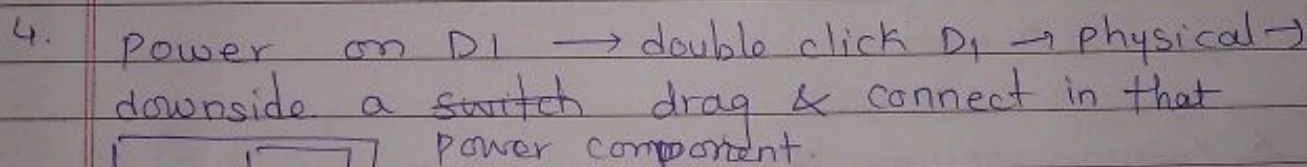 4. Power on D1 → double click D1 → physical →
downside a ~~switch~~ drag & connect in that
power component.